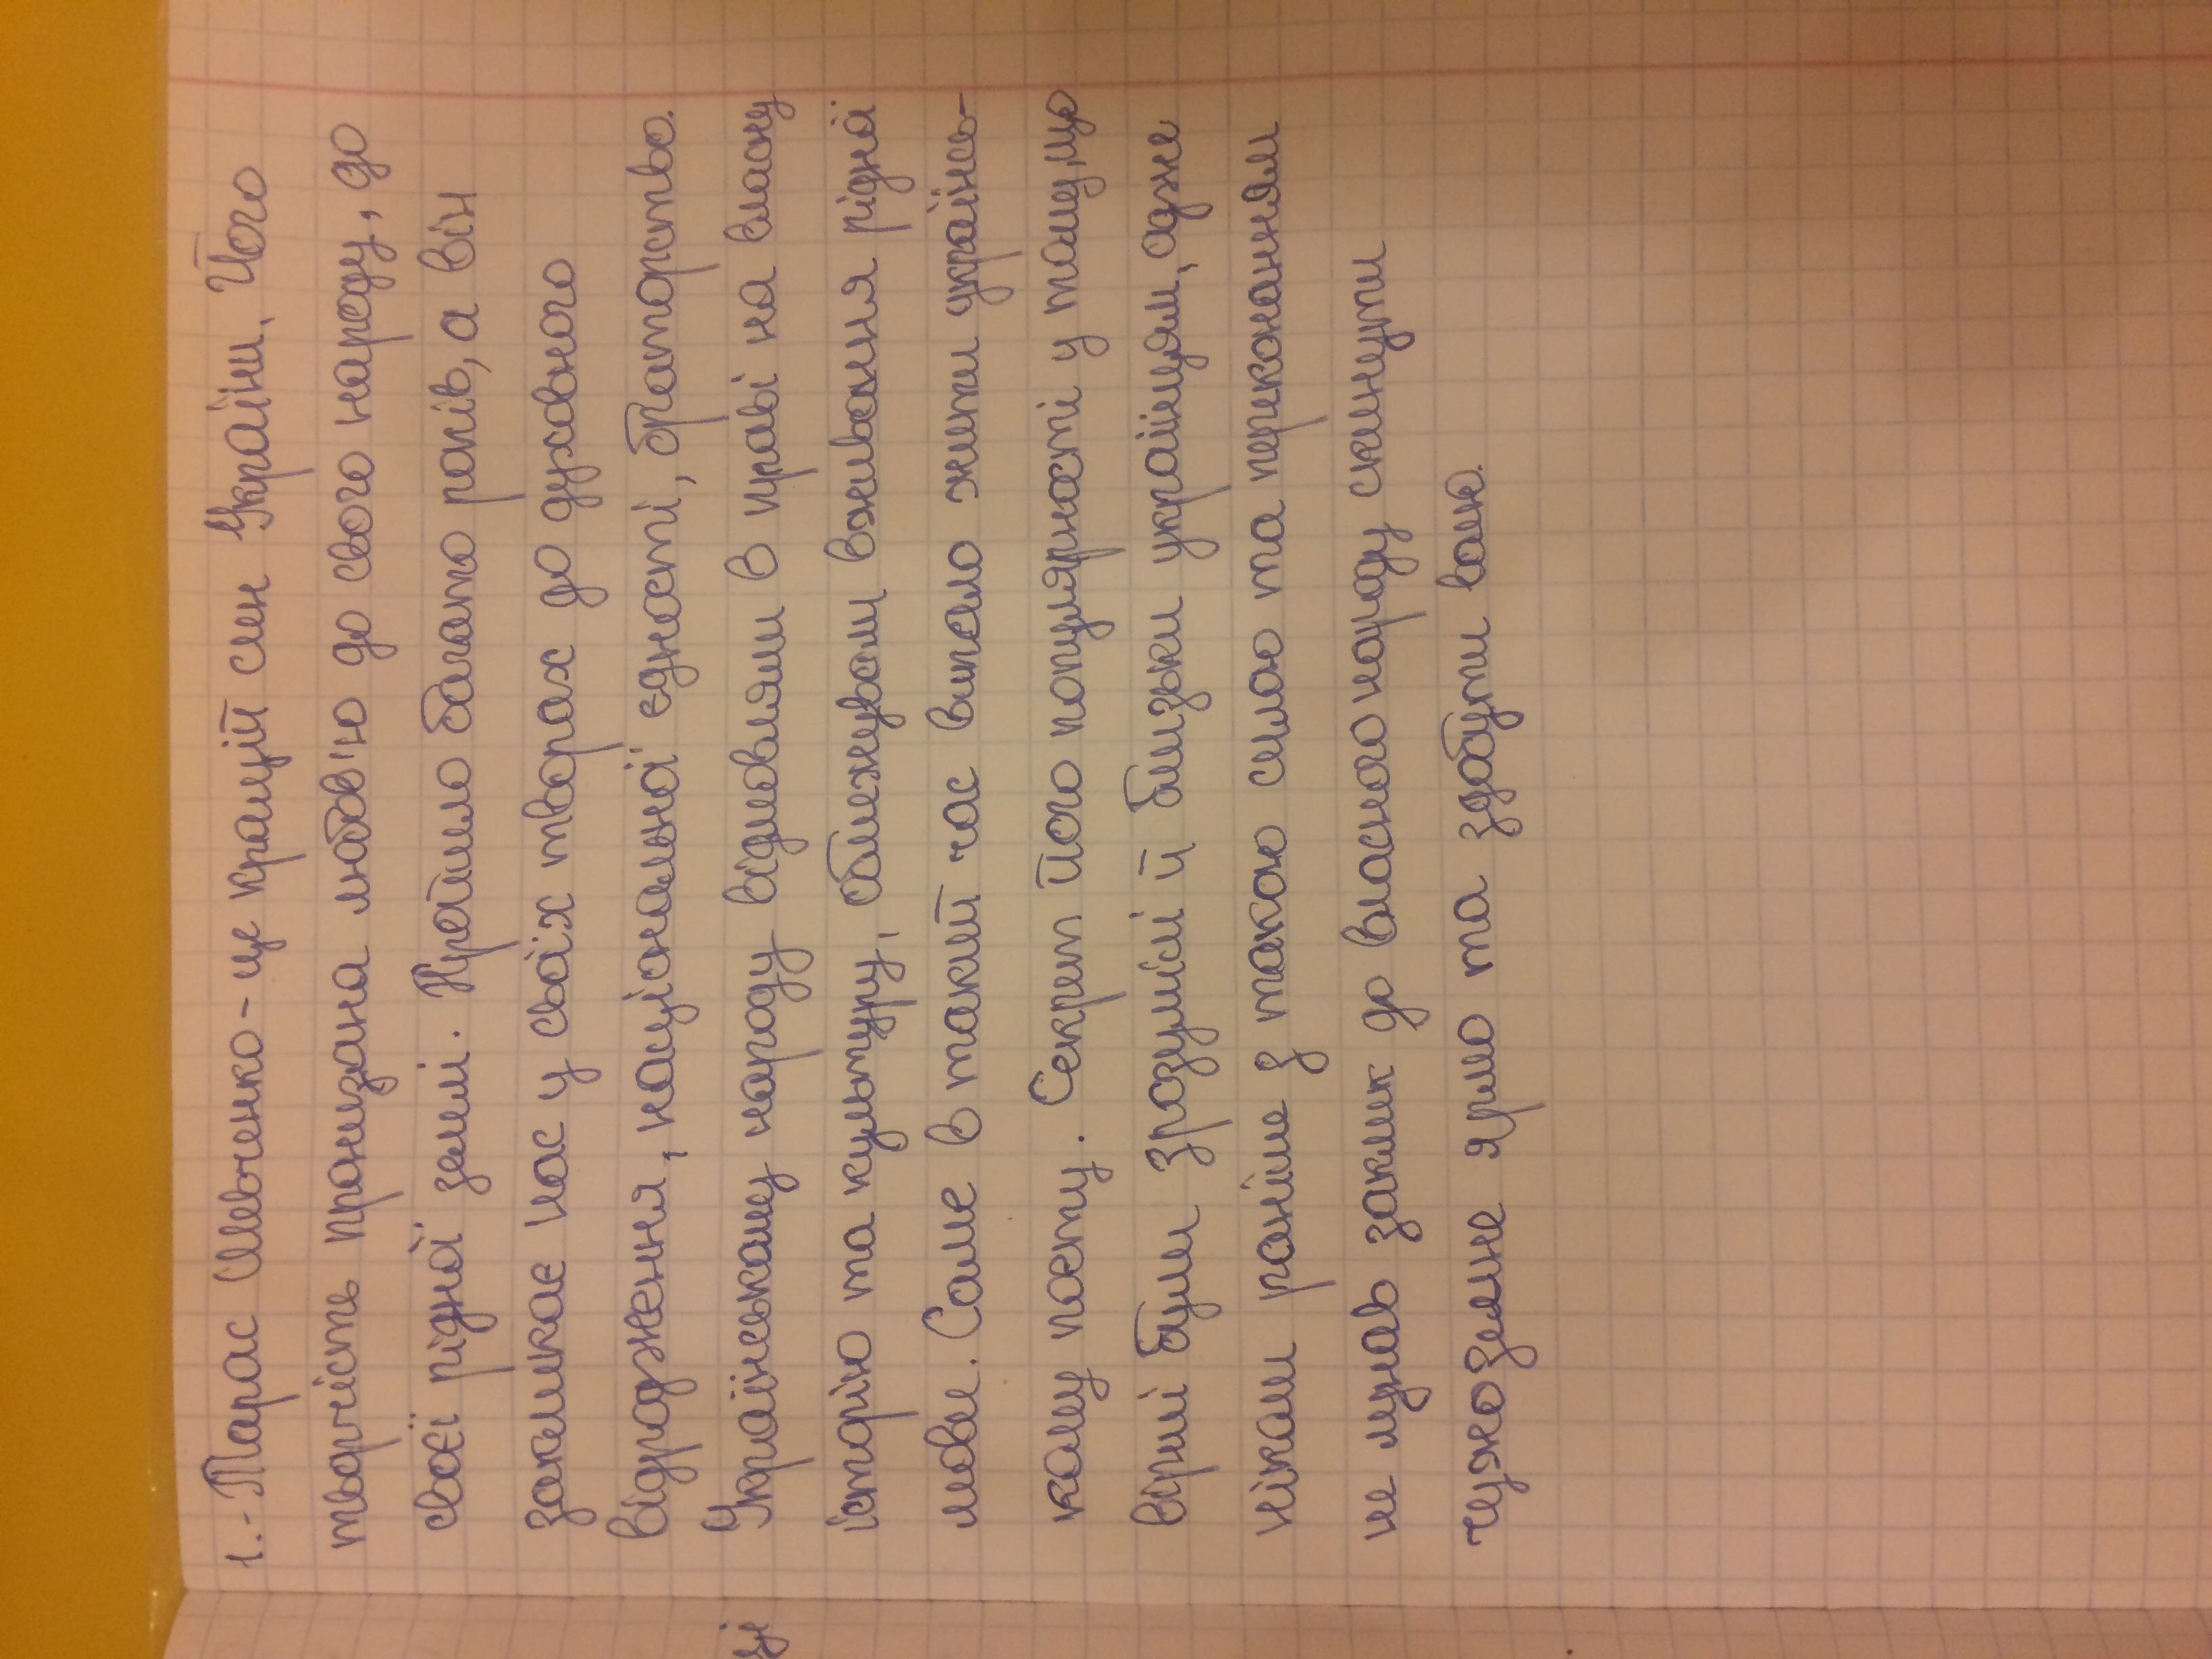 1.-Тарас Шевченко - це кращий син України. Його
творчість пронизана любов'ю до свого народу, до
своєї рідної землі. Пройшло багато років, а він
закликає нас у своїх творах до духовного
відродження, національної єдності, браторство.
Українському народу відмовляли в праві на власну
історію та культуру, обмежували вживання рідної
мови. Саме в такий час випало жити українсь-
кому поету. Секрет його популярності у тому, що
вірші були зрозумілі й близьки українцям, адже
ніколи раніше з такою силою та переконанням
не лунав заклик до власного народу скинути
чужоземне ярмо та здобути волю.